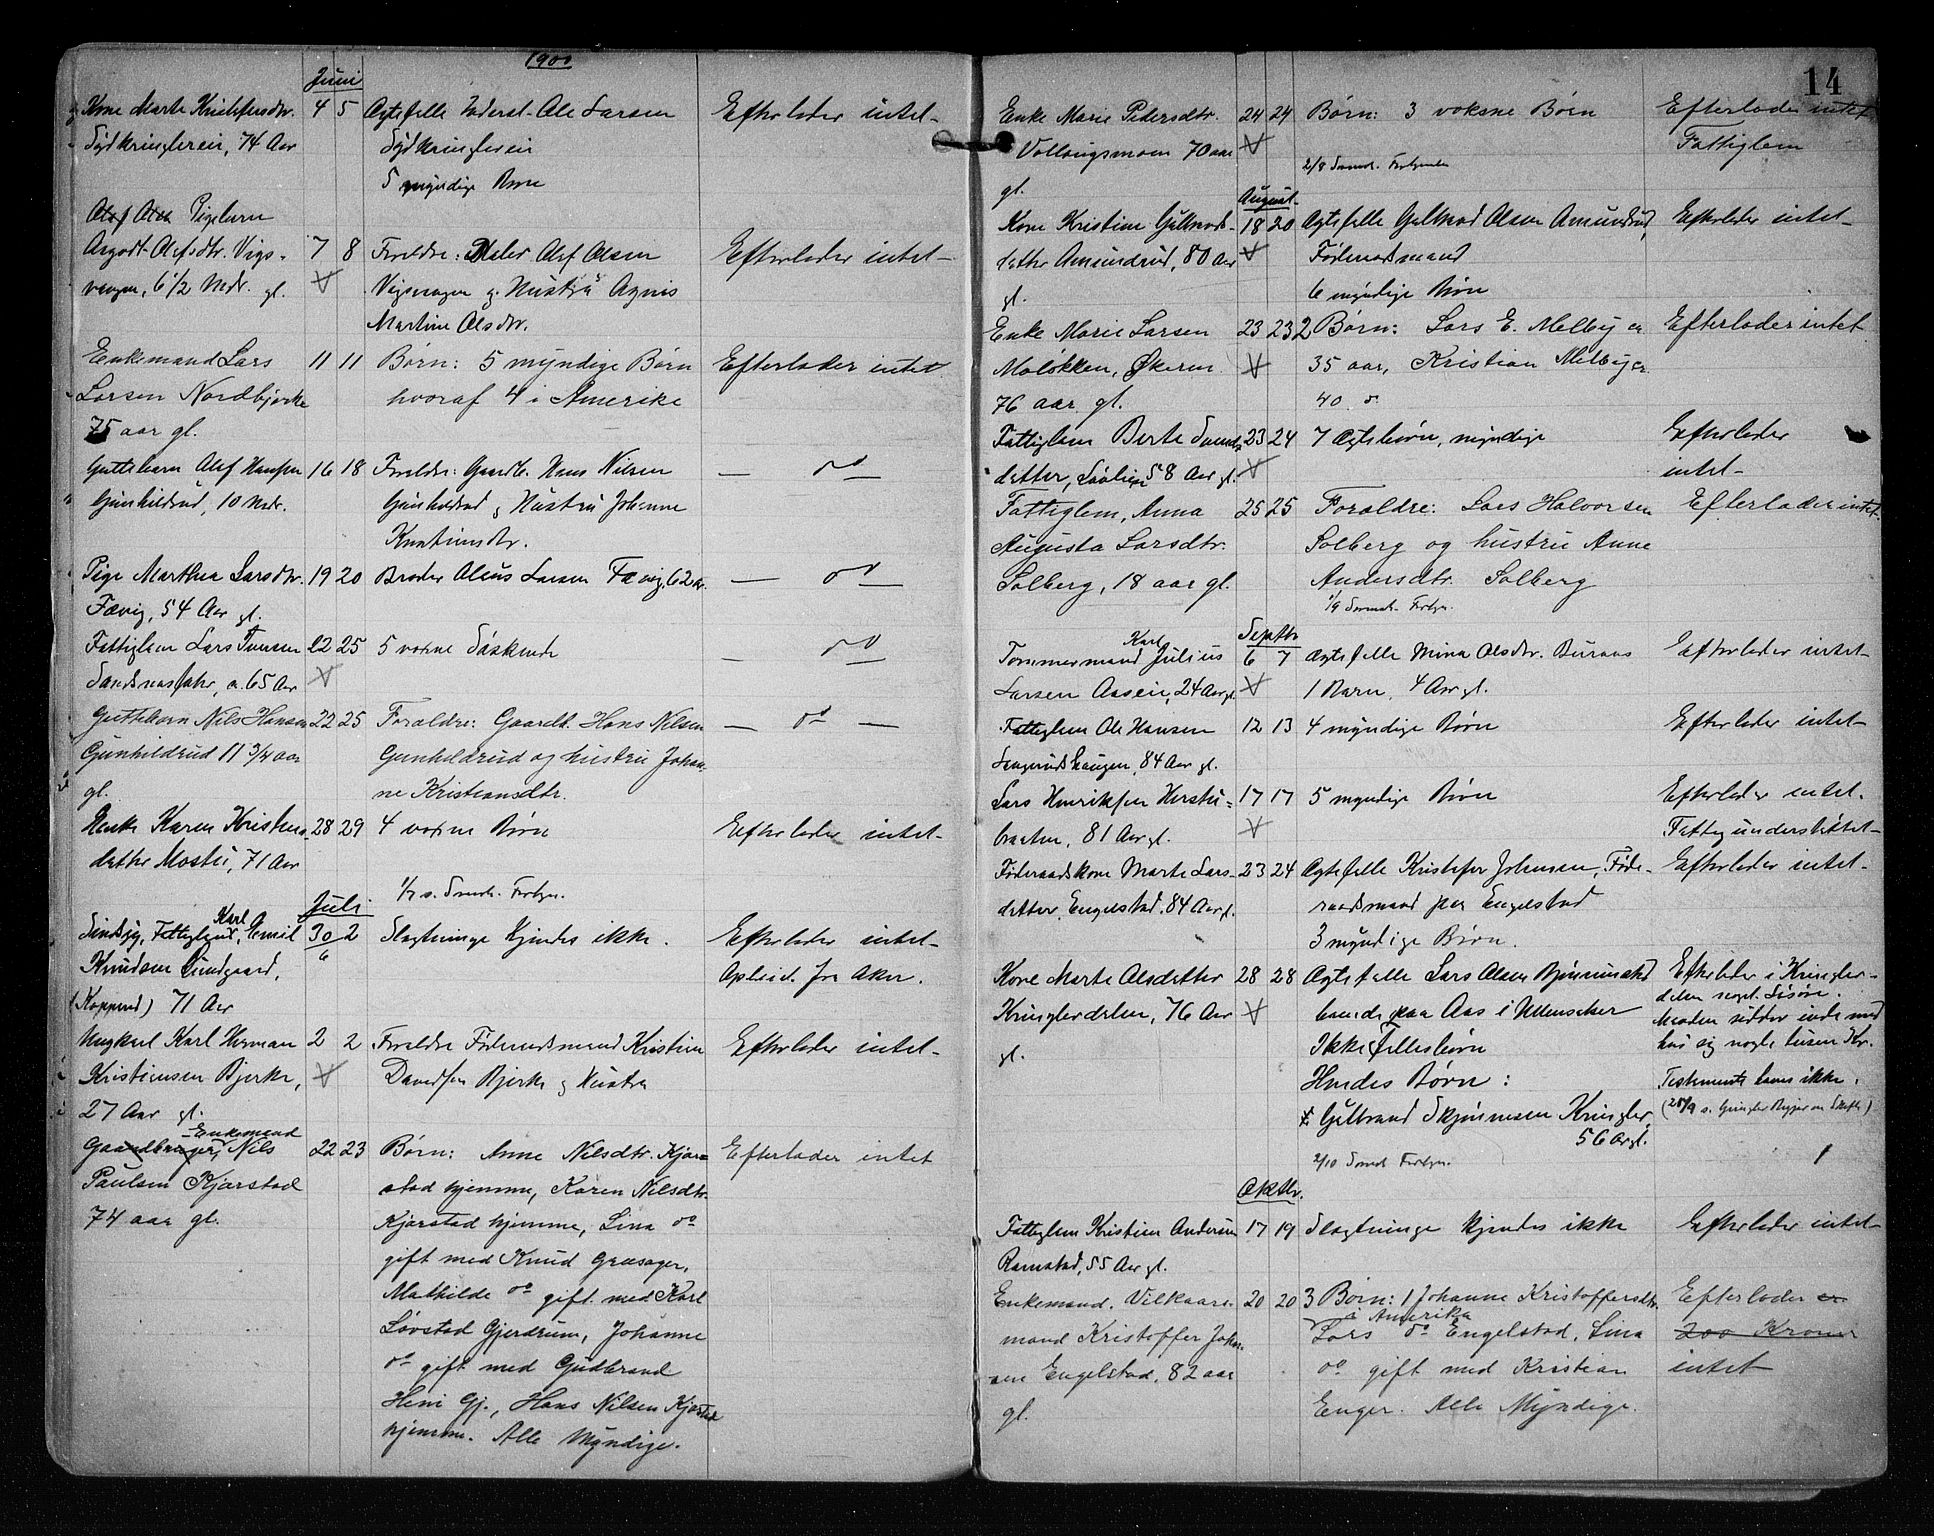 1900
Juni
Kone Marte Kristofersdtr. 4 5 Ægtefelle Føderaadsm. Ole Larsen Efterlader intet
Sydkringlereie, 74 Aar Sydkringlereie
5 myndige Børn
Pigebarn
Aagodt Olsdtr. Vigs- 7 8 Foreldre: Maler Olof Olsen Efterlader intet
vangen, 6 1/2 Mdr. gl. Vigsvangen og Hustru Agnes
Martine Olsdtr.
Enkemand Lars 11 11 Børn: 5 myndige Børn Efterlader intet
Larsen Nordbjerke hvoraf 4 i Amerika
75 aar gl.
Guttebarn Olof Hansen 16 18 Foreldre: Gaardb. Hans Nilsen — do —
Gunhildrud, 10 Mdr. Gunhildrud og Hustru Johanne
Kristiansdtr.
Pige Marthea Larsdtr. 19 20 Broder Olaus Larsen Fævig, 62 Aar — do —
Fævig, 54 Aar gl.
Fattiglem Lars Iversen 22 25 5 voxne Søskende — do —
65 Aar
Guttebarn Nils Hansen 22 25 Foraldre: Gaardb. Hans Nilsen — do —
Gunhildrud 11 3/4 aar Gunhildrud og hustru Johan-
gl. ne Kristiansdtr.
Enke Karen Kristens- 28 29 4 voxne Børn Efterlader intet
datter Mostu, 71 Aar
1/7 s. Dmdr. Fortgn.
Juli
Sindssyg, Fattiglem, Karl Emil 30/6 2 Slægtninge kjendes ikke. Efterlader intet
Knudsen Lundgaard, Opleid. fra Aker.
71 Aar
Ungkarl Karl Herman 2 2 Foreldre Føderaadsmand Kristian Efterlader intet
Kristiansen Bjerke, Davidsen Bjerke og Hustru
27 Aar gl.
Enkemand
Gaardbruger, Nils 22 23 Børn: Anne Nilsdtr. Kjær- Efterlader intet
Paulsen Kjærstad stad hjemme, Karen Nilsdtr.
74 aar gl. Kjærstad hjemme, Lina do
gift med Knud Græsager,
Mathilde do gift med Karl
Løvstad Gjerdrum, Johanne
do gift med Gudbrand
Heni Gj., Hans Nilsen Kjærstad
hjemme. Alle Myndige.
14
Enke Marie Pedersdtr. 24 24 Børn: 3 voksne Børn Efterlader intet
Vollaugsmoen 70 aar Fattiglem
gl. 2/8 Dmdr. Fortgn.
August
Kone Kristine Gulbrands- 18 20 Ægtefelle Gulbrand Olsen Amundrud, Efterlader intet
datter Amundrud, 80 Aar Føderaadsmand
gl. 6 myndige Børn
Enke Marie Larsen 23 23 2 Børn: Lars E. Melby ca Efterlader intet
Moløkken, Økern 35 aar, Kristian Melby ca
76 aar gl. 40 do
Fattiglem Berte 23 24 7 Ægtebørn, myndige Efterlader
datter, 58 Aar gl. intet
Fattiglem, Anna 25 25 Foraldre: Lars Halvorsen Efterlader intet
Augusta Larsdtr. Solberg og hustru Anne
Solberg, 18 aar gl. Andersdtr. Solberg
1/9 Dmdr. Fortgn.
Septbr
Tømmermand Karl Julius 6 7 Ægtefelle Mina Olsdtr. Buraas Efterlader intet
Larsen Aaseie, 24 Aar gl. 1 Barn, 4 Aar gl.
Fattiglem Ole Hansen 12 13 4 myndige Børn Efterlader intet
84 Aar gl.
Lars Henriksen Herstu- 17 17 5 myndige Børn Efterlader intet.
braaten, 81 Aar gl. Fattigunderstøttet
Føderaadskone Marte Lars- 23 24 Ægtefelle Kristofer Johansen, Føde- Efterlader intet
datter Engelstad, 84 Aar gl. raadsmand paa Engelstad
3 myndige Børn.
Kone Marte Olsdatter 28 28 Ægtefelle Lars Olsen Efterlader i Kringler-
Kringlerdalen, 76 Aar boende paa Aas i Ullensaker dalen noget Løsøre.
gl. Ikke Fellesbørn Manden sidder inde med
Hendes Børn: hos sig nogle tusen Kr.
Gulbrand Kringler, Testamente haves ikke.
56 Aar gl. (28/9 s. Skifte)
2/10 Dmdr. Fortgn. 1
Oktbr.
Fattiglem Kristian Andersen 17 19 Slægtninge kjendes ikke Efterlader intet
Ramstad, 55 Aar gl.
Enkemand. Vilkaars- 20 20 3 Børn: 1 Johanne Kristoffersdtr. Efterlader ca
i Amerika
mand Kristoffer Johan- Lars do Engelstad, Lina 200 Kroner
sen Engelstad, 82 aar do gift med Kristian intet
gl. Enger. Alle Myndige.